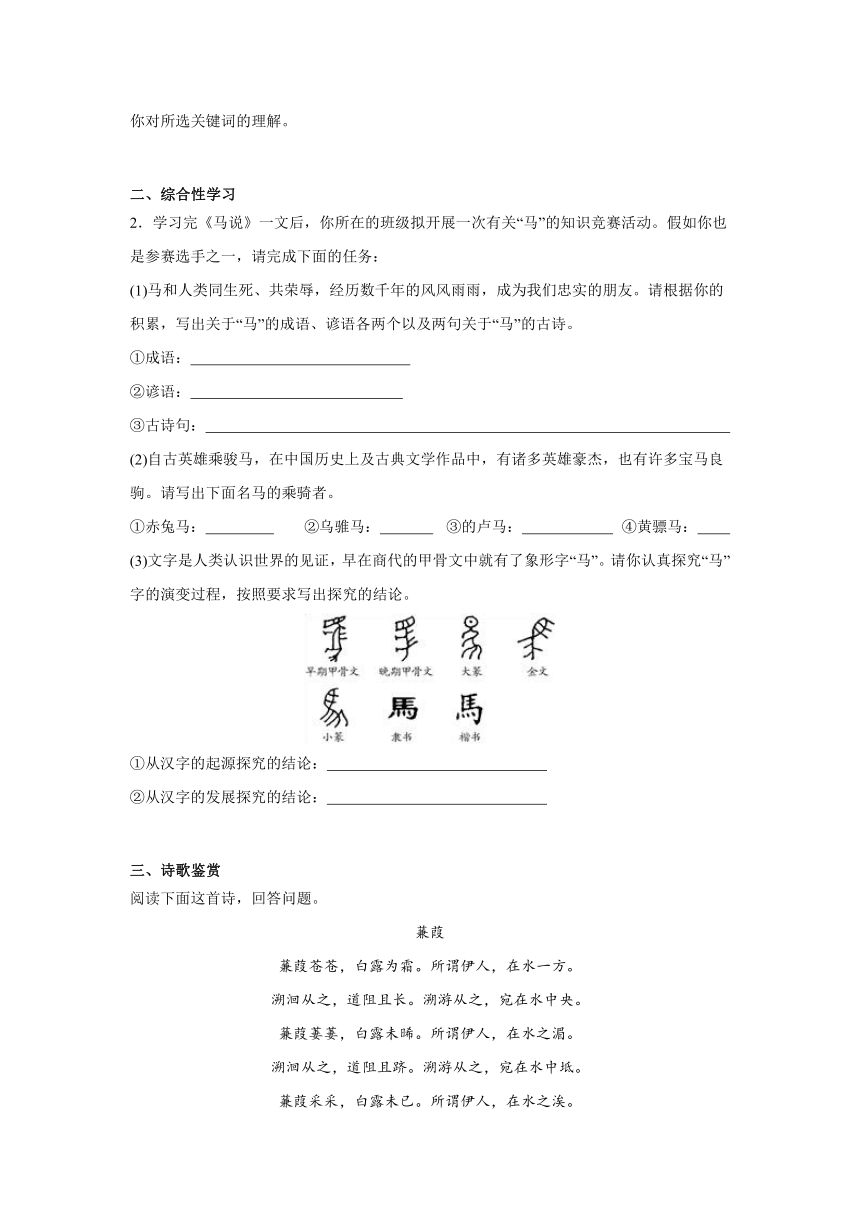 你对所选关键词的理解。
二、综合性学习
2．学习完《马说》一文后，你所在的班级拟开展一次有关“马”的知识竞赛活动。假如你也
是参赛选手之一，请完成下面的任务：
(1)马和人类同生死、共荣辱，经历数千年的风风雨雨，成为我们忠实的朋友。请根据你的
积累，写出关于“马”的成语、谚语各两个以及两句关于“马”的古诗。
①成语：
②谚语：
③古诗句：
(2)自古英雄乘骏马，在中国历史上及古典文学作品中，有诸多英雄豪杰，也有许多宝马良
驹。请写出下面名马的乘骑者。
①赤兔马： ②乌骓马： ③的卢马： ④黄骠马：
(3)文字是人类认识世界的见证，早在商代的甲骨文中就有了象形字“马”。请你认真探究“马”
字的演变过程，按照要求写出探究的结论。
早期甲骨文 晚期甲骨文 大篆 金文
馬 馬
小篆 隶书 楷书
①从汉字的起源探究的结论：
②从汉字的发展探究的结论：
三、诗歌鉴赏
阅读下面这首诗，回答问题。
蒹葭
蒹葭苍苍，白露为霜。所谓伊人，在水一方。
溯洄从之，道阻且长。溯游从之，宛在水中央。
蒹葭萋萋，白露未晞。所谓伊人，在水之湄。
溯洄从之，道阻且跻。溯游从之，宛在水中坻。
蒹葭采采，白露未已。所谓伊人，在水之涘。